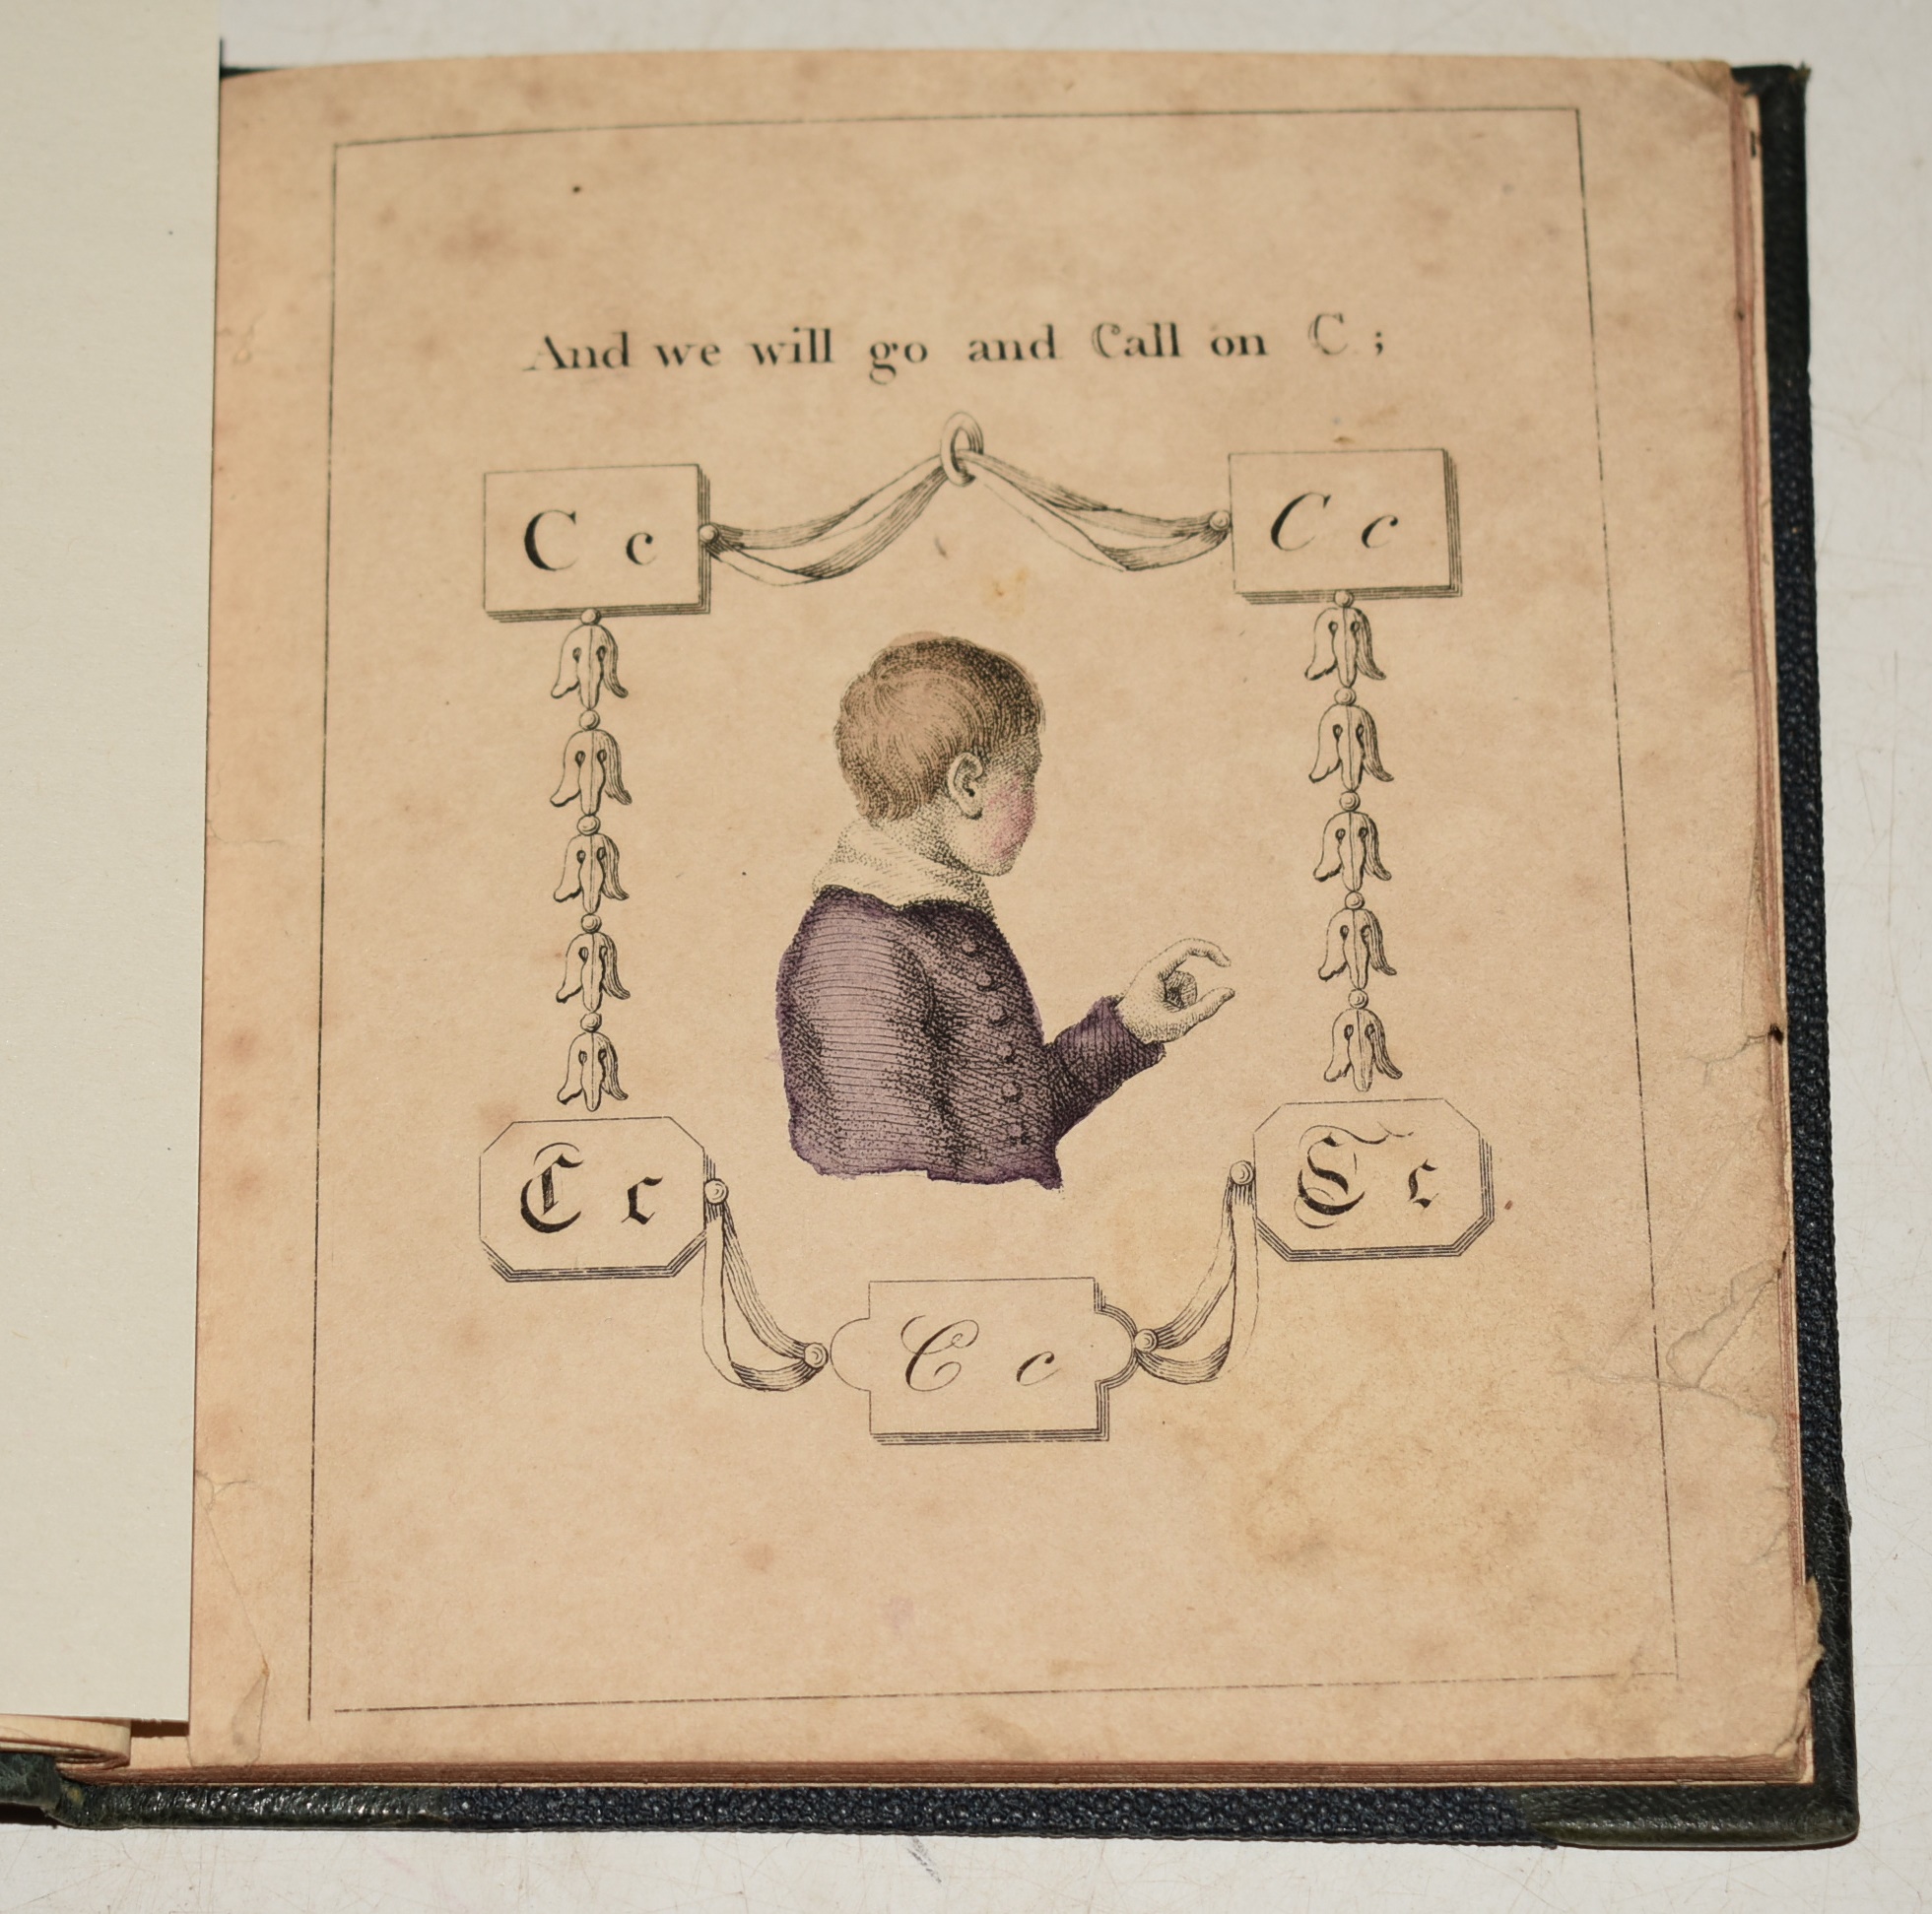 And we will go and Call on C ;
C c
C c
C c
C c
C c